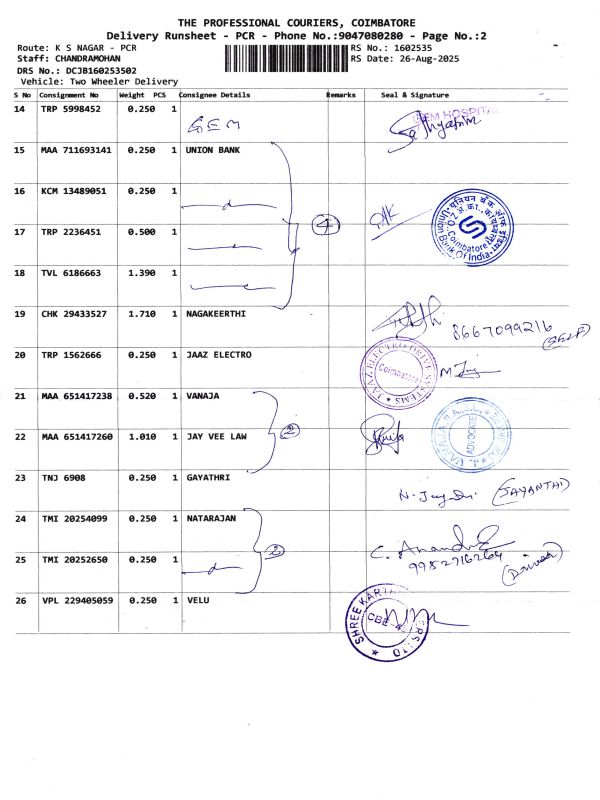 THE PROFESSIONAL COURIERS, COIMBATORE
Delivery Runsheet - PCR - Phone No.:9047080280 - Page No.:2
Route: K S NAGAR - PCR
RS No.: 1602535
Staff: CHANDRAMOHAN
RS Date: 26-Aug-2025
DRS No.: DCJB160253502
Vehicle: Two Wheeler Delivery
S No Consignment No Weight PCS Consignee Details Remarks Seal & Signature
14 TRP 5998452 0.250 1 GEM GEM HOSPITAL
15 MAA 711693141 0.250 1 UNION BANK
16 KCM 13489051 0.250 1
17 TRP 2236451 0.500 1 4
Union Bank Of India Coimbatore
18 TVL 6186663 1.390 1
19 CHK 29433527 1.710 1 NAGAKEERTHI 8667099216 (SELF)
20 TRP 1562666 0.250 1 JAAZ ELECTRO
JAAZ ELECTRO DRIVE SYSTEMS Coimbatore
21 MAA 651417238 0.520 1 VANAJA
22 MAA 651417260 1.010 1 JAY VEE LAW 2
ADVOCATE
23 TNJ 6908 0.250 1 GAYATHRI
24 TMI 20254099 0.250 1 NATARAJAN 2
25 TMI 20252650 0.250 1
C. Anand
9952716264 (Driver)
26 VPL 229405059 0.250 1 VELU
SHREE CBE